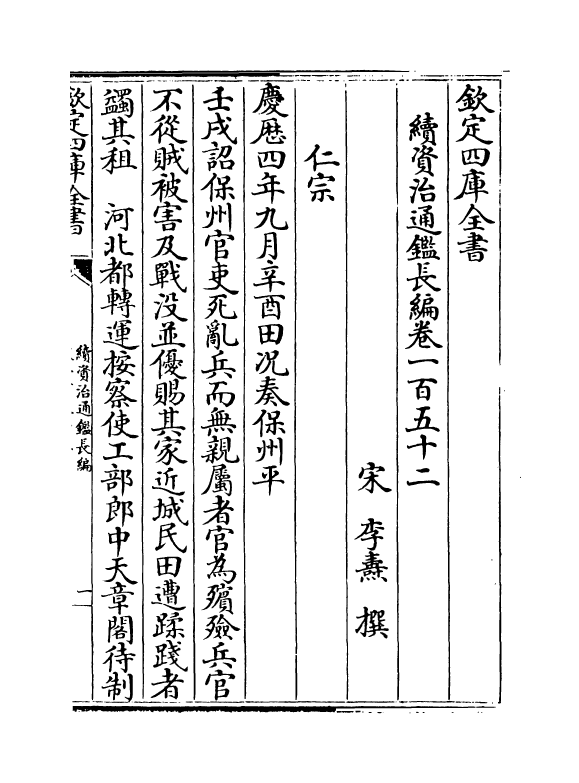 欽定四庫全書
續資治通鑑長編卷一百五十二
宋 李燾 撰
仁宗
慶厯四年九月辛酉田况奏保州平
壬戌詔保州官吏死亂兵而無親屬者官為殯殮兵官
不從賊被害及戰没並優賜其家近城民田遭蹂踐者
蠲其租 河北都轉運按察使工部郎中天章閣待制
欽定四庫全書
續資治通鑑長編
一